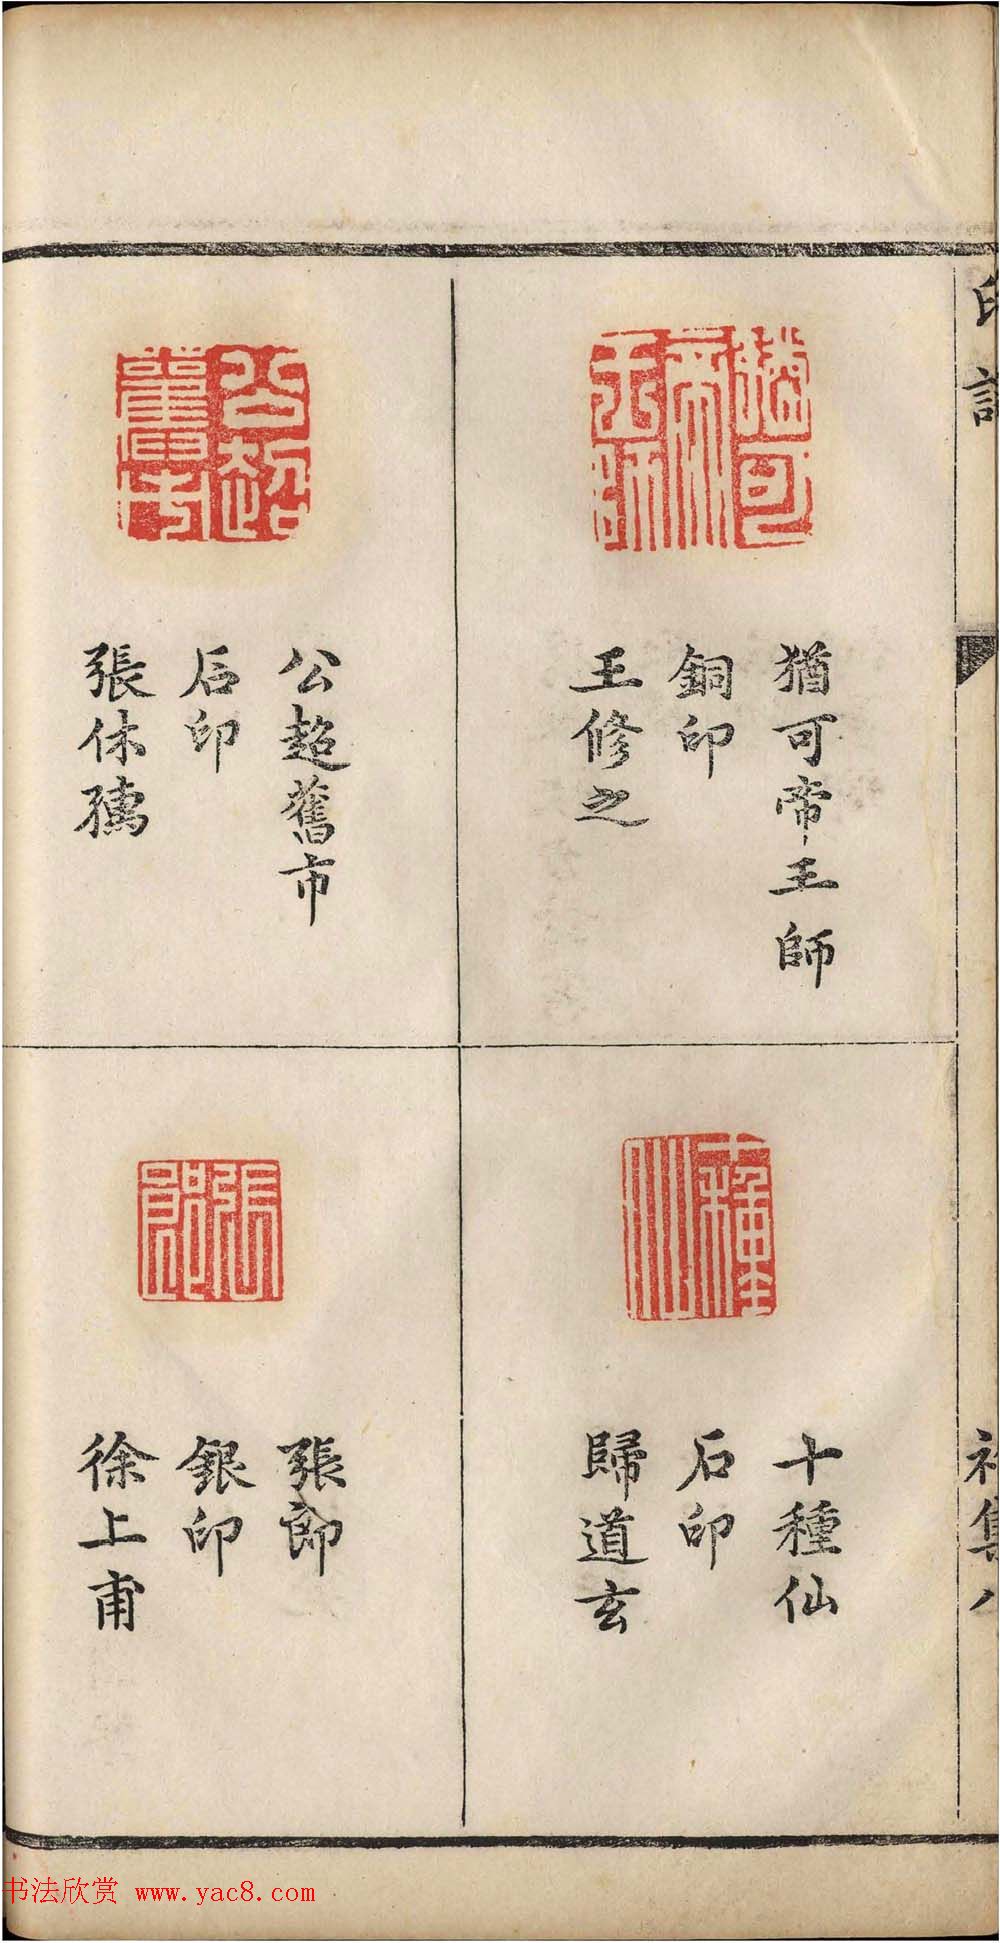 猶可帝王師
銅印
王修之
公超舊市
石印
張休孺
十種仙
石印
歸道玄
張郎
銀印
徐上甫
书法欣赏 www.yac8.com